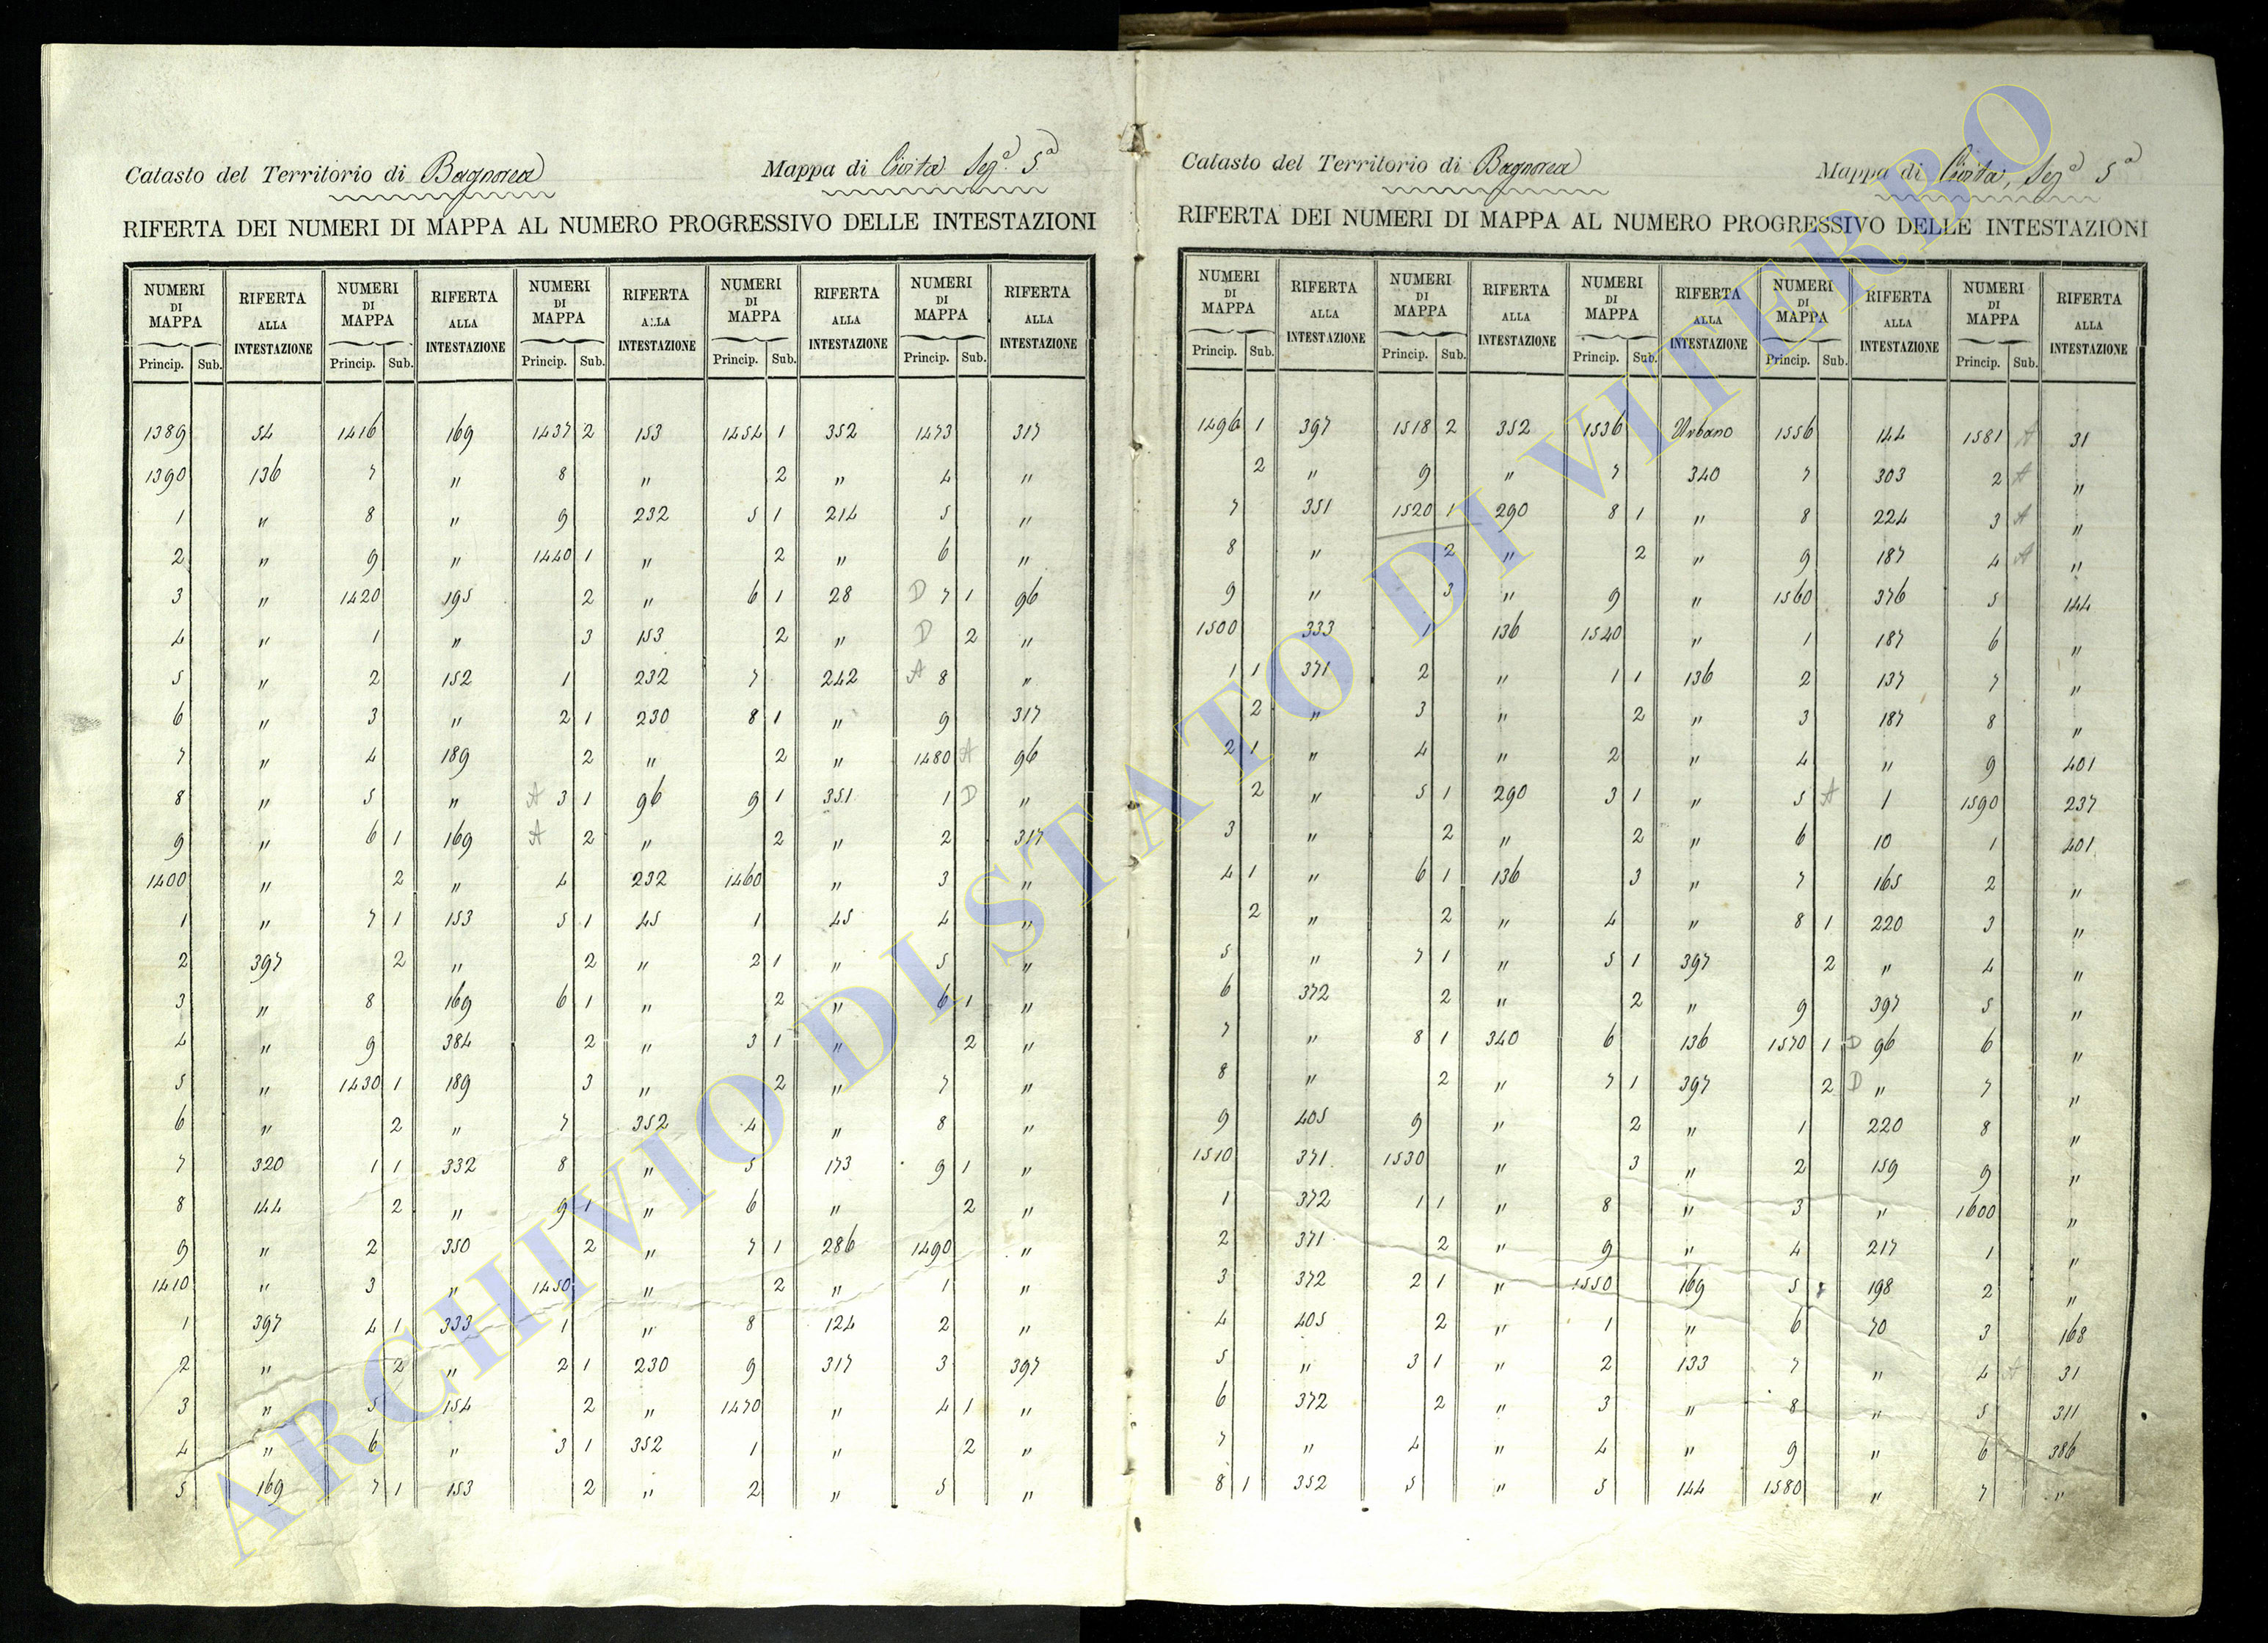 Catasto del Territorio di Bagnorea Mappa di Civita Seze 5a
RIFERTA DEI NUMERI DI MAPPA AL NUMERO PROGRESSIVO DELLE INTESTAZIONI
NUMERI DI MAPPA RIFERTA ALLA INTESTAZIONE NUMERI DI MAPPA RIFERTA ALLA INTESTAZIONE NUMERI DI MAPPA RIFERTA ALLA INTESTAZIONE NUMERI DI MAPPA RIFERTA ALLA INTESTAZIONE NUMERI DI MAPPA RIFERTA ALLA INTESTAZIONE
Princip. Sub. Princip. Sub. Princip. Sub. Princip. Sub. Princip. Sub.
1389 54 1416 169 1437 2 153 1454 1 352 1473 317
1390 136 7 " 8 " 2 " 4 "
1 " 8 " 9 232 5 1 214 5 "
2 " 9 " 1440 1 " 2 " 6 "
3 " 1420 195 2 " 6 1 28 D 7 1 96
4 " 1 " 3 153 2 " D 2 "
5 " 2 152 1 232 7 242 A 8 "
6 " 3 " 2 1 230 8 1 " 9 317
7 " 4 189 2 " 2 " 1480 A 96
8 " 5 " A 3 1 96 9 1 351 1 D "
9 " 6 1 169 A 2 " 2 " 2 317
1400 " 2 " 4 232 1460 " 3 "
1 " 7 1 153 5 1 45 1 45 4 "
2 397 2 " 2 " 2 1 " 5 "
3 " 8 169 6 1 " 2 " 6 1 "
4 " 9 384 2 " 3 1 " 2 "
5 " 1430 1 189 3 " 2 " 7 "
6 " 2 " 7 352 4 " 8 "
7 320 1 1 332 8 " 5 173 9 1 "
8 144 2 " 9 1 " 6 " 2 "
9 " 2 350 2 " 7 1 286 1490 "
1410 " 3 " 1450 " 2 " 1 "
1 397 4 1 333 1 " 8 124 2 "
2 " 2 " 2 1 230 9 317 3 397
3 " 5 154 2 " 1470 " 4 1 "
4 " 6 " 3 1 352 1 " 2 "
5 169 7 1 153 2 " 2 " 5 "
Catasto del Territorio di Bagnorea Mappa di Civita, Seze 5a
RIFERTA DEI NUMERI DI MAPPA AL NUMERO PROGRESSIVO DELLE INTESTAZIONI
NUMERI DI MAPPA RIFERTA ALLA INTESTAZIONE NUMERI DI MAPPA RIFERTA ALLA INTESTAZIONE NUMERI DI MAPPA RIFERTA ALLA INTESTAZIONE NUMERI DI MAPPA RIFERTA ALLA INTESTAZIONE NUMERI DI MAPPA RIFERTA ALLA INTESTAZIONE
Princip. Sub. Princip. Sub. Princip. Sub. Princip. Sub. Princip. Sub.
1496 1 397 1518 2 352 1536 Urbano 1556 144 1581 A 31
2 " 9 " 7 340 7 303 2 A "
7 351 1520 1 290 8 1 " 8 224 3 A "
8 " 2 " 2 " 9 187 4 A "
9 " 3 " 9 " 1560 376 5 144
1500 333 1 136 1540 " 1 187 6 "
1 1 371 2 " 1 1 136 2 137 7 "
2 " 3 " 2 " 3 187 8 "
2 1 " 4 " 2 " 4 " 9 401
2 " 5 1 290 3 1 " 5 A 1 1590 237
3 " 2 " 2 " 6 10 1 401
4 1 " 6 1 136 3 " 7 165 2 "
2 " 2 " 4 " 8 1 220 3 "
5 " 7 1 " 5 1 397 2 " 4 "
6 372 2 " 2 " 9 397 5 "
7 " 8 1 340 6 136 1570 1 D 96 6 "
8 " 2 " 7 1 397 2 D " 7 "
9 405 9 " 2 " 1 220 8 "
1510 371 1530 " 3 " 2 159 9 "
1 372 1 1 " 8 " 3 " 1600 "
2 371 2 " 9 " 4 217 1 "
3 372 2 1 " 1550 169 5 198 2 "
4 405 2 " 1 " 6 70 3 168
5 " 3 1 " 2 133 7 " 4 A 31
6 372 2 " 3 " 8 " 5 311
7 " 4 " 4 " 9 " 6 386
8 1 352 5 " 5 144 1580 " 7 "
ARCHIVIO DI STATO DI VITERBO